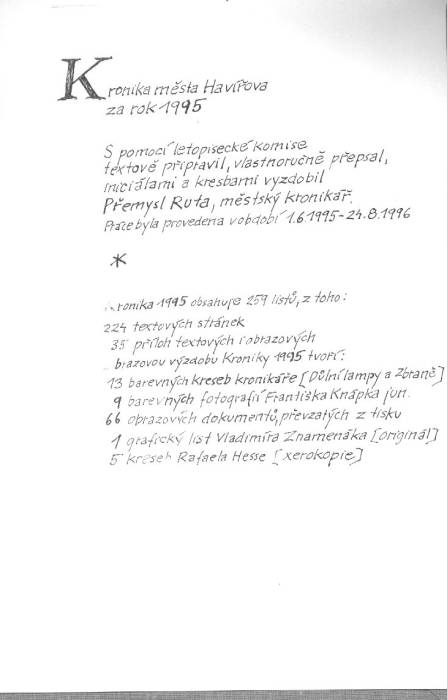 Kronika města Havířova
za rok 1995
S pomocí letopisecké komise
textově připravil, vlastnoručně přepsal,
iniciálami a kresbami vyzdobil
Přemysl Ruta, městský kronikář.
Práce byla provedena v období 1.6.1995-24.8.1996
*
ronika 1995 obsahuje 259 listů, z toho:
224 textových stránek
35 příloh textových i obrazových
brazovou výzdobu Kroniky 1995 tvoří:
13 barevných kreseb kronikáře [Důlní lampy a Zbraně]
9 barevných fotografií Františka Knápka jun.
66 obrazových dokumentů, převzatých z tisku
1 grafický list Vladimíra Znamenáka [originál]
5 kreseb Rafaela Hesse [xerokopie]